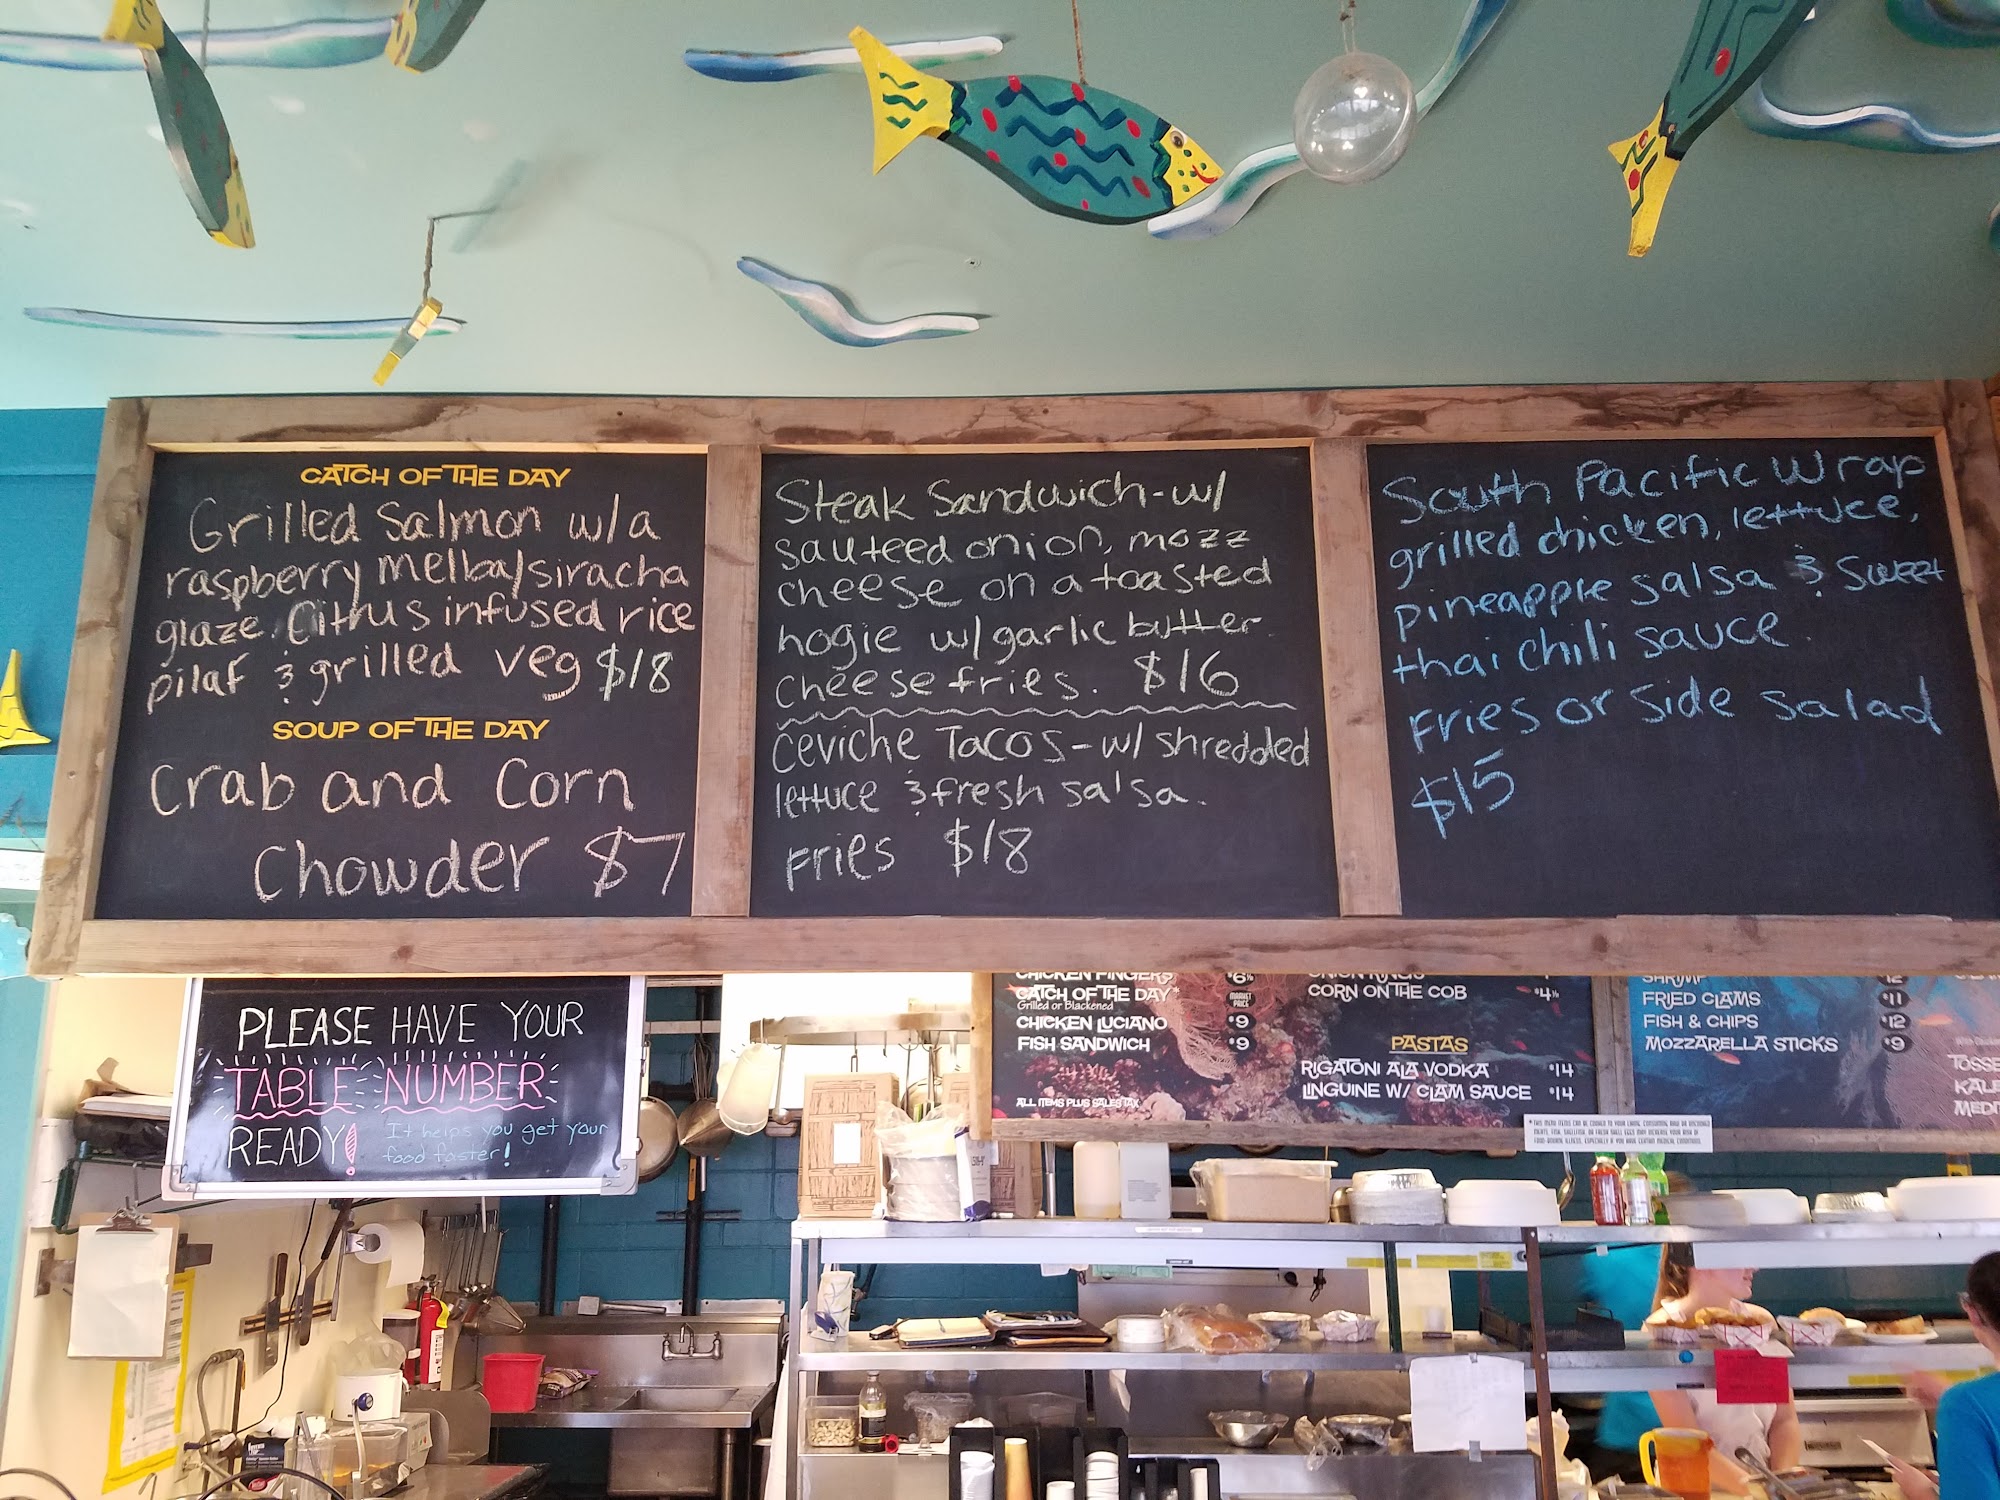 CATCH OF THE DAY
Grilled Salmon w/a
raspberry melba/siracha
glaze. Citrus infused rice
pilaf & grilled veg $18
SOUP OF THE DAY
Crab and Corn
Chowder $7
Steak Sandwich-w/
sauteed onion, mozz
cheese on a toasted
hogie w/garlic butter.
cheese fries. $16
Ceviche Tacos-w/shredded
lettuce & fresh salsa.
Fries $18
South Pacific Wrap
grilled chicken, lettuce,
pineapple salsa & sweet
thai chili sauce.
Fries or side salad
$15
PLEASE HAVE YOUR
TABLE NUMBER
READY!
It helps you get your
food faster!
CHICKEN FINGERS
CATCH OF THE DAY* MARKET PRICE
Grilled or Blackened
CHICKEN LUCIANO $9
FISH SANDWICH $9
ALL ITEMS PLUS SALES TAX
ONION RINGS
CORN ON THE COB
PASTAS
RIGATONI ALA VODKA $14
LINGUINE W/ CLAM SAUCE $14
SHRIMP 12
FRIED CLAMS $11
FISH & CHIPS $12
MOZZARELLA STICKS $9